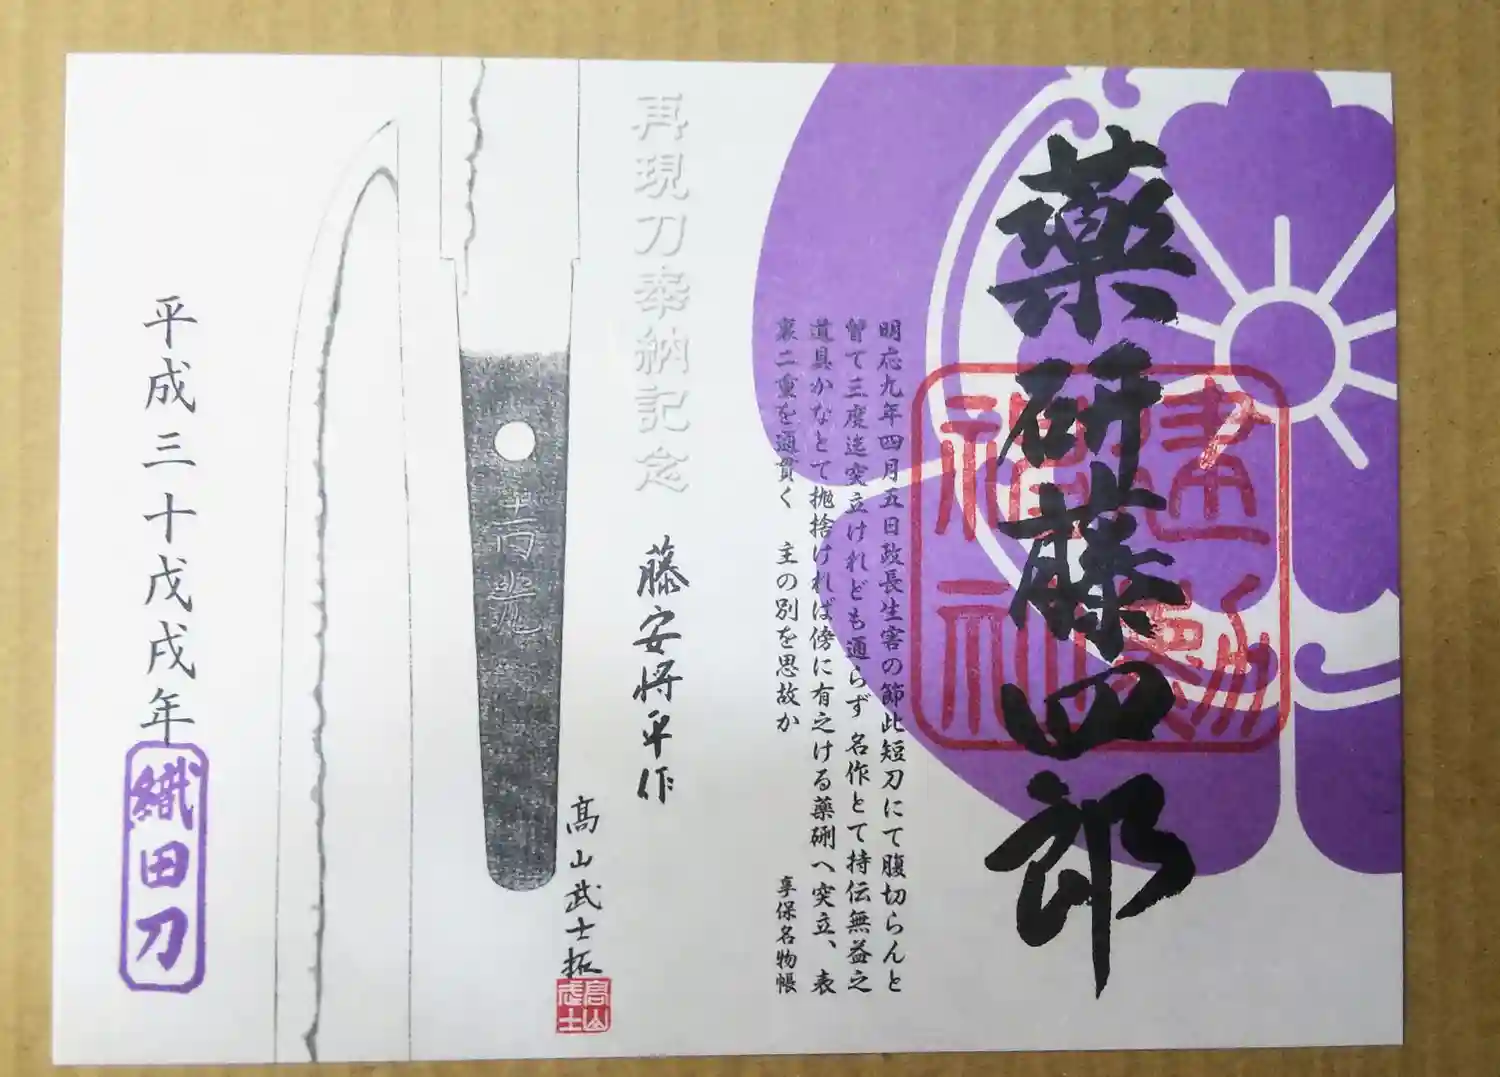 薬研藤四郎
建勲
神社
明応九年四月五日政長生害の節此短刀にて腹切らんと
曽て三度迄突立けれども通らず 名作とて持伝無益之
道具かなとて抛捨ければ傍に有之ける薬研へ突立、表
裏二重を通貫く 主の別を思故か
享保名物帳
再現刀奉納記念
藤安将平作
高山武士拓
高山
武士
吉光
平成三十戊戌年
織田刀